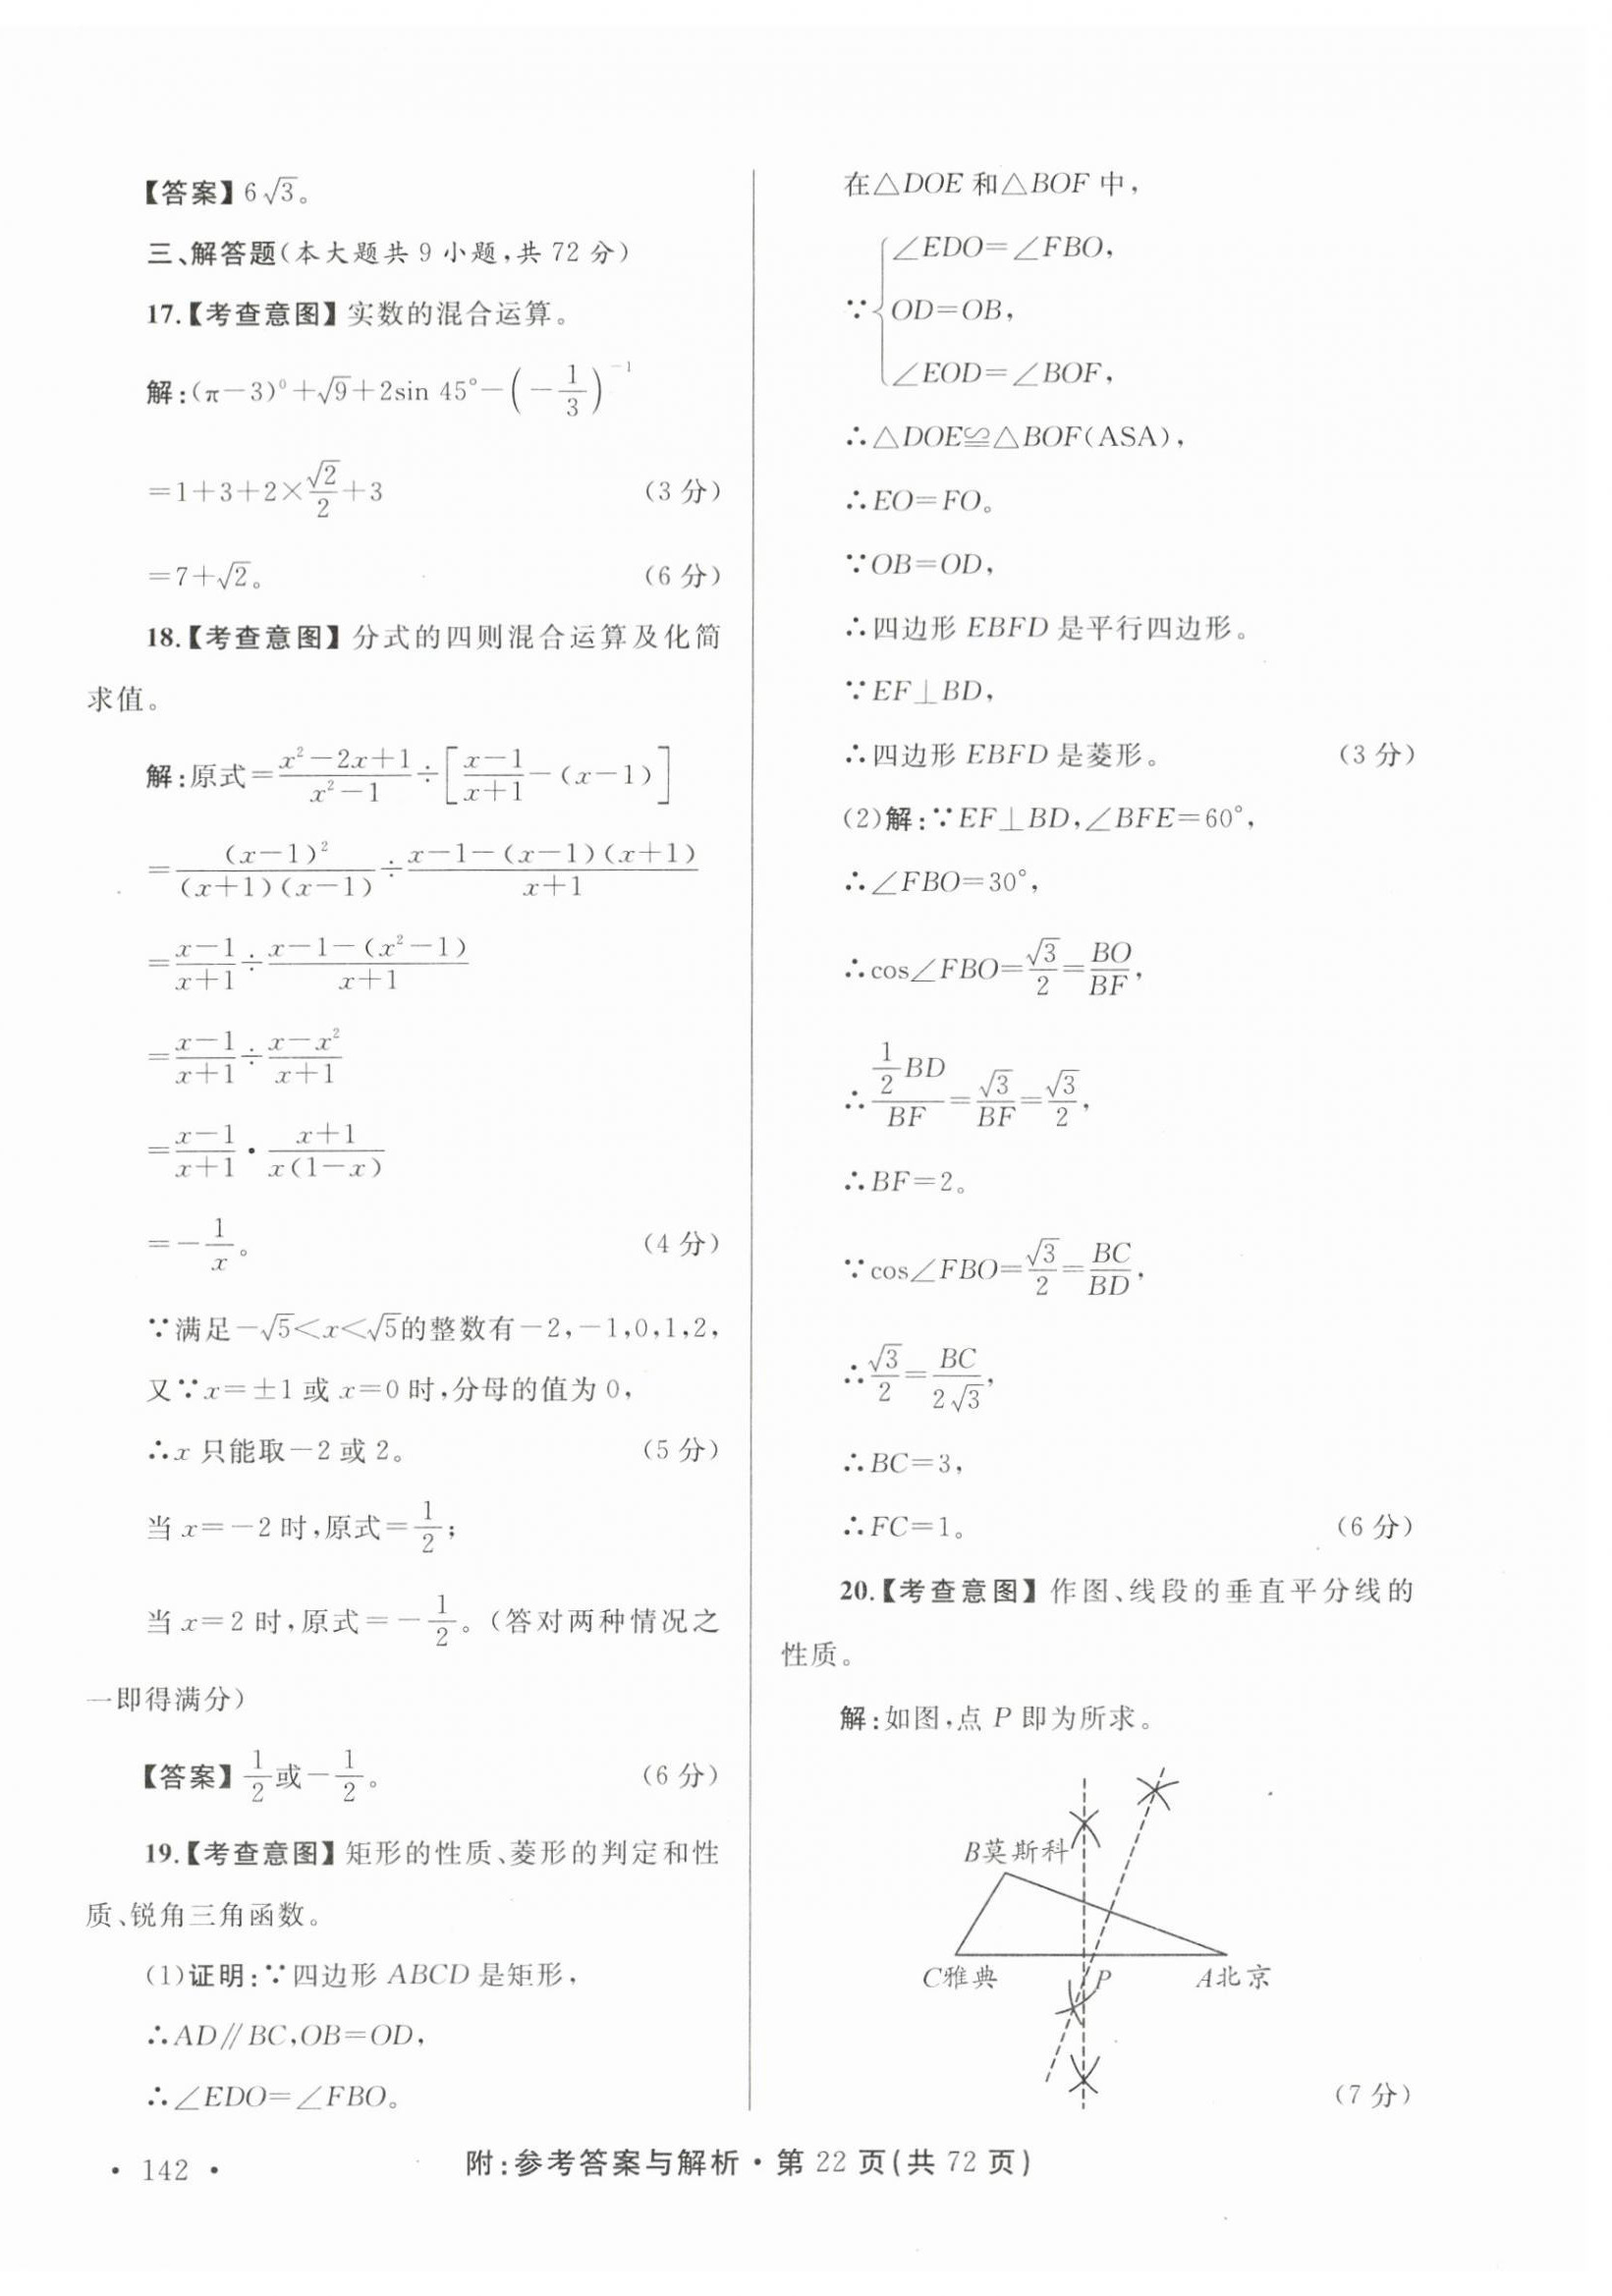 【答案】6√3。
三、解答题(本大题共 9 小题,共 72 分)
17.【考查意图】实数的混合运算。
解:(π-3)⁰+√9+2sin 45°-(-1/3)⁻¹
=1+3+2×√2/2+3 (3 分)
=7+√2。 (6 分)
18.【考查意图】分式的四则混合运算及化简
求值。
解:原式=(x²-2x+1)/(x²-1)÷[(x-1)/(x+1)-(x-1)]
=(x-1)²/((x+1)(x-1))÷(x-1-(x-1)(x+1))/(x+1)
=(x-1)/(x+1)÷(x-1-(x²-1))/(x+1)
=(x-1)/(x+1)÷(x-x²)/(x+1)
=(x-1)/(x+1)·(x+1)/(x(1-x))
=-1/x。 (4 分)
∵满足-√5<x<√5的整数有-2,-1,0,1,2,
又∵x=±1 或 x=0 时,分母的值为 0,
∴x 只能取-2 或 2。 (5 分)
当 x=-2 时,原式=1/2;
当 x=2 时,原式=-1/2。(答对两种情况之
一即得满分)
【答案】1/2或-1/2。 (6 分)
19.【考查意图】矩形的性质、菱形的判定和性
质、锐角三角函数。
(1)证明:∵四边形 ABCD 是矩形,
∴AD∥BC,OB=OD,
∴∠EDO=∠FBO。
在△DOE 和△BOF 中,
∠EDO=∠FBO,
∵{OD=OB,
∠EOD=∠BOF,
∴△DOE≌△BOF(ASA),
∴EO=FO。
∵OB=OD,
∴四边形 EBFD 是平行四边形。
∵EF⊥BD,
∴四边形 EBFD 是菱形。 (3 分)
(2)解:∵EF⊥BD,∠BFE=60°,
∴∠FBO=30°,
∴cos∠FBO=√3/2=BO/BF,
∴(1/2 BD)/BF=√3/BF=√3/2,
∴BF=2。
∵cos∠FBO=√3/2=BC/BD,
∴√3/2=BC/(2√3),
∴BC=3,
∴FC=1。 (6 分)
20.【考查意图】作图、线段的垂直平分线的
性质。
解:如图,点 P 即为所求。
B莫斯科
C雅典 P A北京
(7 分)
• 142 •
附:参考答案与解析·第 22 页(共 72 页)